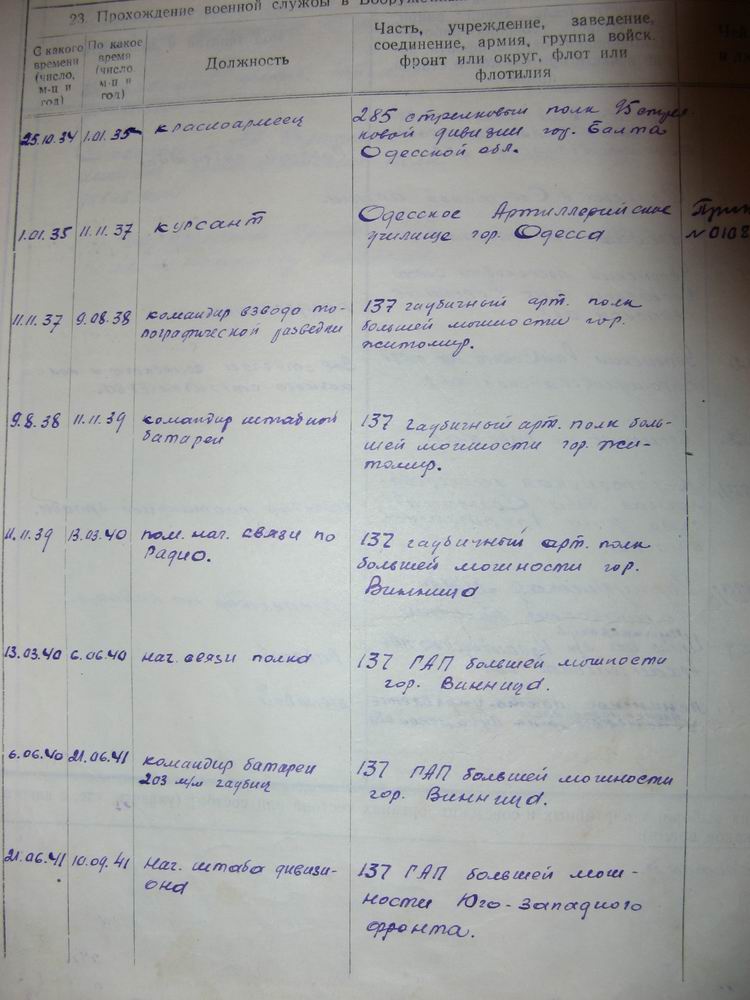 23. Прохождение военной службы в Вооруженных
С какого времени (число, м-ц и год)
По какое время (число, м-ц и год)
Должность
Часть, учреждение, заведение,
соединение, армия, группа войск.
фронт или округ, флот или
флотилия
25.10.34 1.01.35 красноармеец 285 стрелковый полк 95 стрел-
ковой дивизии гор. Балта
Одесской обл.
1.01.35 11.11.37 курсант Одесское Артиллерийское
училище гор. Одесса
11.11.37 9.08.38 командир взвода то- 137 гаубичный арт. полк
пографической разведки большей мошности гор.
житомир.
9.8.38 11.11.39 командир штабной 137 гаубичный арт. полк боль-
батареи шей мошности гор. жи-
томир.
11.11.39 13.03.40 пом. нач. связи по 137 гаубичный арт. полк
Радио. большей мошности гор.
Винница
13.03.40 6.06.40 нач. связи полка 137 ГАП большей мошности
гор. Винница.
6.06.40 21.06.41 командир батареи 137 ГАП большей мошности
203 м/м гаубиц гор. Винница.
21.06.41 10.09.41 нач. штаба дивизи- 137 ГАП большей мош-
она ности Юго-Западного
фронта.